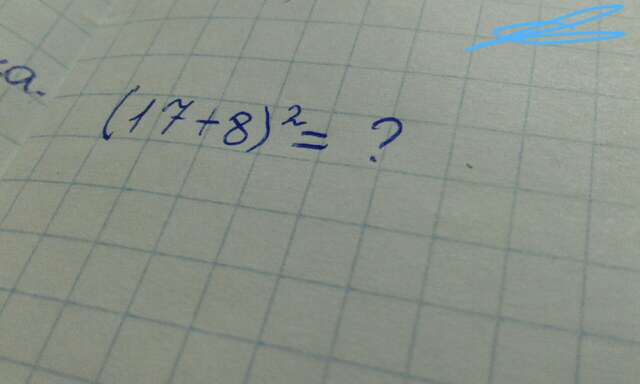 а.
(17+8)²= ?